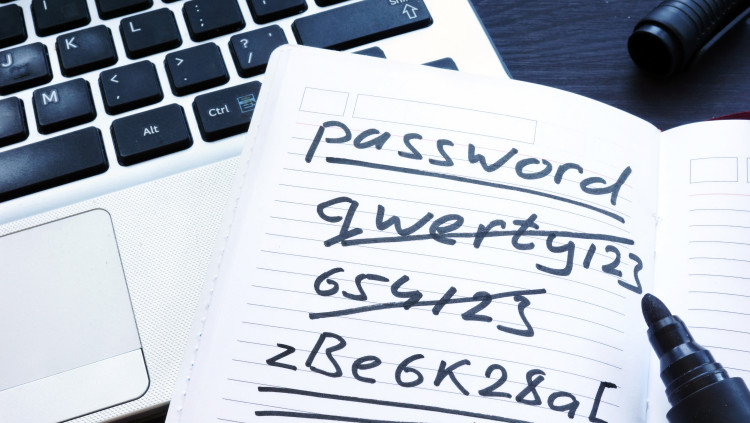 J K L : ;
M < , > . ? /
Alt Ctrl
Shift
password
qwerty123
654123
zBe6K28a[